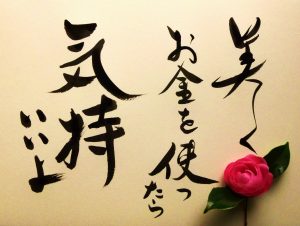 美しく
お金を使ったら
気持
いいよ